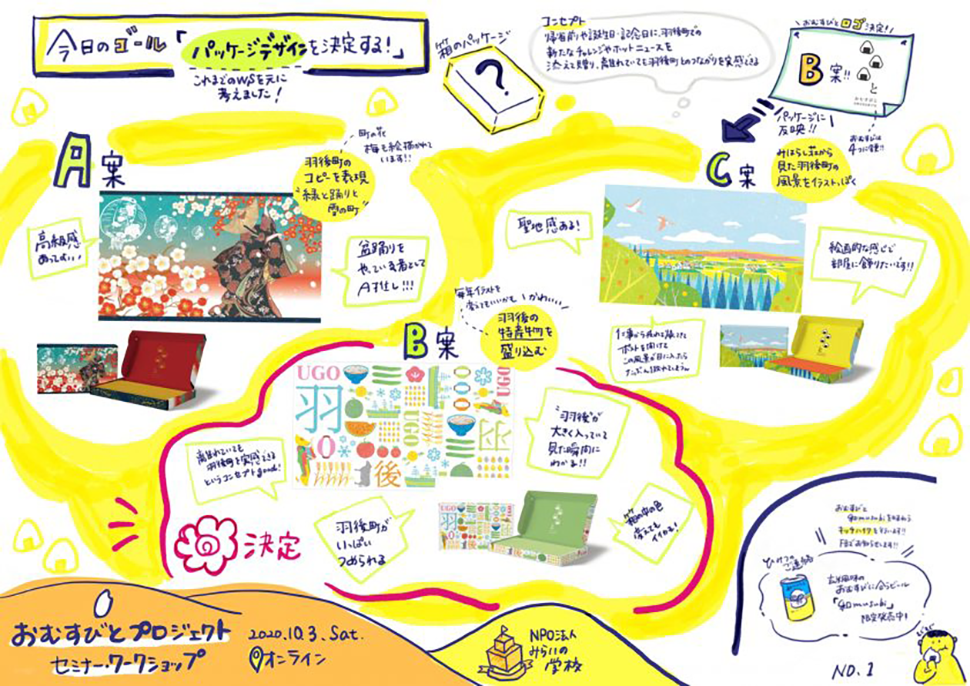 今日のゴール「パッケージデザインを決定する!」
これまでのWSを元に
考えました!
箱のパッケージ
?
コンセプト
帰省前や誕生日・記念日に、羽後町での
新たなチャレンジやホットニュースを
添えて贈り、離れていても羽後町とのつながりを実感できる
おむすびと ロゴ決定!!
B案!!
と
パッケージに
反映!!
おむすびは
A案
町の花
梅も絵描かれて
います!!
羽後町の
コピーを表現
"緑と踊りと
雪の町"
高級感
盆踊りを
やっている者として
A推し!!!
C案
みはらし荘から
見た羽後町の
風景をイラストっぽく
聖地感あるよ!
絵画的な感じで
部屋に飾りたいです!!
この風景が目に入ったら
B案
毎年イラストを
変えていいかも
かわいい!
羽後の
特産物を
盛り込む
UGO
羽
UGO
後
離れていても
羽後町を実感できる
というコンセプトgood!
"羽後"が
大きく入っていて
見た瞬間に
わかる!!
羽後町が
いっぱい
つめられる
箱の中の色
変えても
イイかも!
決定
おむすびとプロジェクト
セミナー・ワークショップ
2020.10.3.Sat.
オンライン
NPO法人
みらいの
学校
おむすびと
キッチハイクとります!!
おむすびに合うビール
限定発売中!
NO.1